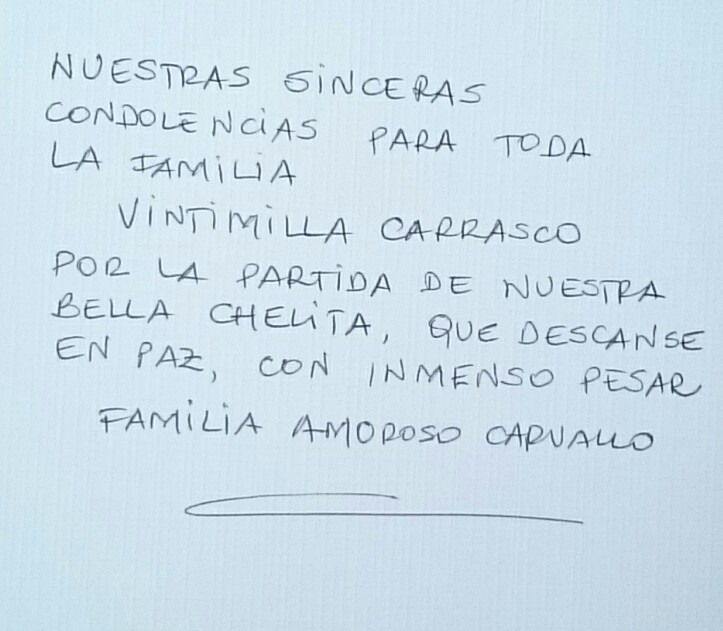 NUESTRAS SINCERAS
CONDOLENCIAS PARA TODA
LA FAMILIA
VINTIMILLA CARRASCO
POR LA PARTIDA DE NUESTRA
BELLA CHELITA, QUE DESCANSE
EN PAZ, CON INMENSO PESAR
FAMILIA AMOROSO CARVALLO